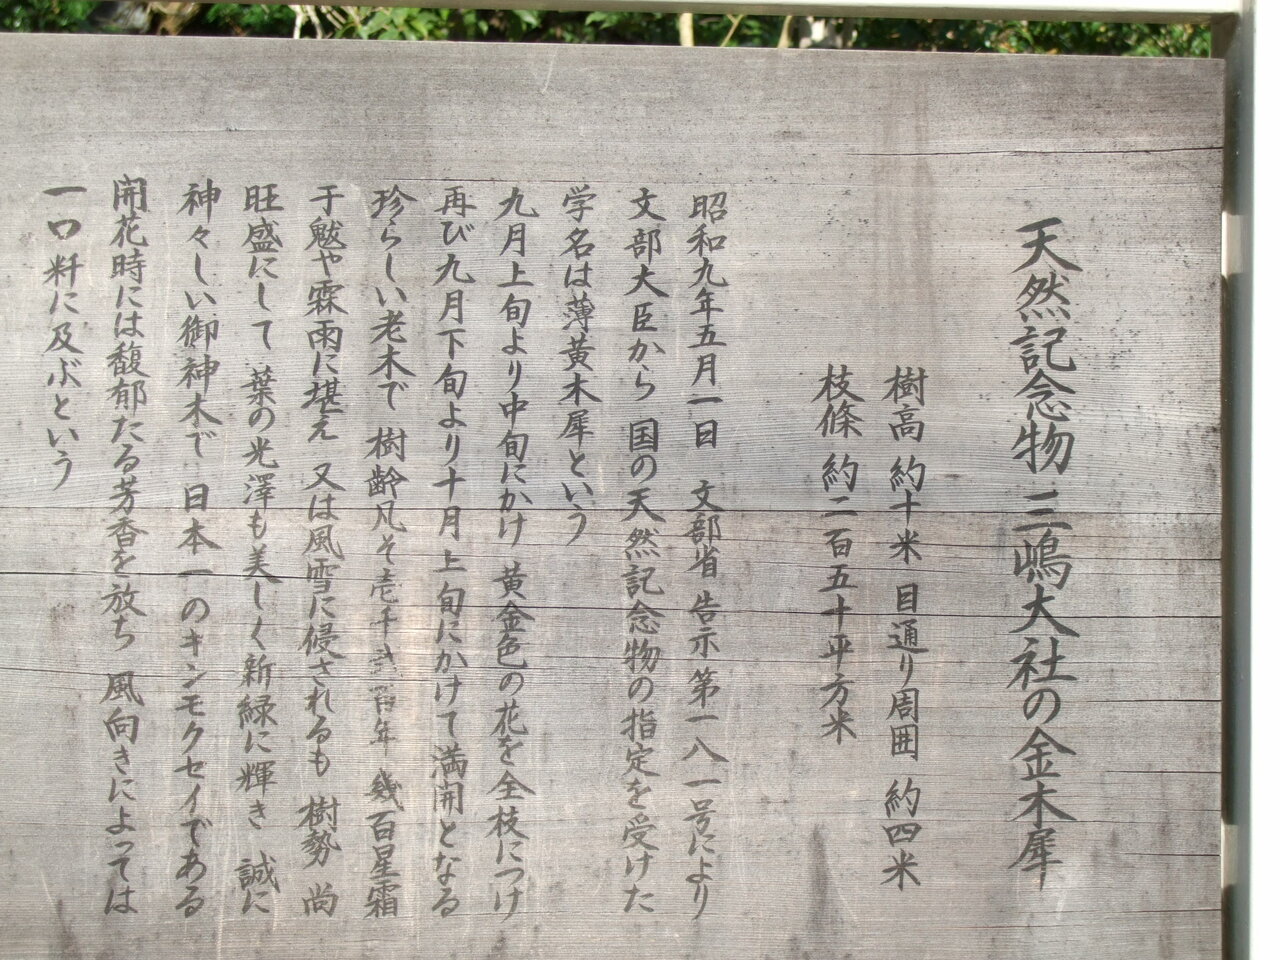 天然記念物 三嶋大社の金木犀
樹高 約十米 目通り周囲 約四米
枝條 約二百五十平方米
昭和九年五月一日 文部省告示第一八一号により
文部大臣から 国の天然記念物の指定を受けた
学名は薄黄木犀という
九月上旬より中旬にかけ 黄金色の花を全枝につけ
再び九月下旬より十月上旬にかけて満開となる
珍らしい老木で 樹齢凡そ壱千弐百年 幾百星霜
于魃や霖雨に堪え 又は風雪に侵されるも 樹勢 尚
旺盛にして 葉の光澤も美しく新緑に輝き 誠に
神々しい御神木で 日本一のキンモクセイである
開花時には馥郁たる芳香を放ち 風向きによっては
一口粁に及ぶという